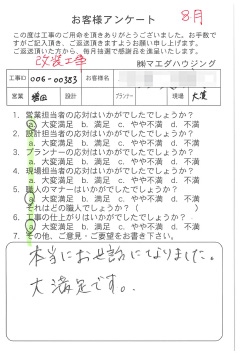 お客様アンケート
8月
この度は工事のご用命を頂きありがとうございました。お手数で
すがご記入頂き、ご返送頂きますようお願い申し上げます。
ご返送頂いた方から、毎月抽選で感謝品を進呈いたします。
改装工事
㈱マエダハウジング
工事ID 006-00383 お客様名
営業 設計 プランナー 現場
1. 営業担当者の応対はいかがでしたでしょうか?
a. 大満足 b. 満足 c. やや不満 d. 不満
2. 設計担当者の応対はいかがでしたでしょうか?
a. 大満足 b. 満足 c. やや不満 d. 不満
3. プランナーの応対はいかがでしたでしょうか?
a. 大満足 b. 満足 c. やや不満 d. 不満
4. 現場担当者の応対はいかがでしたでしょうか?
a. 大満足 b. 満足 c. やや不満 d. 不満
5. 職人のマナーはいかがでしたでしょうか?
a. 大満足 b. 満足 c. やや不満 d. 不満
それはどの職人でしょうか?( )
6. 工事の仕上がりはいかがでしたでしょうか?
a. 大満足 b. 満足 c. やや不満 d. 不満
7. その他、ご意見・ご要望をお書き下さい。
本当にお世話になりました。
大満足です。